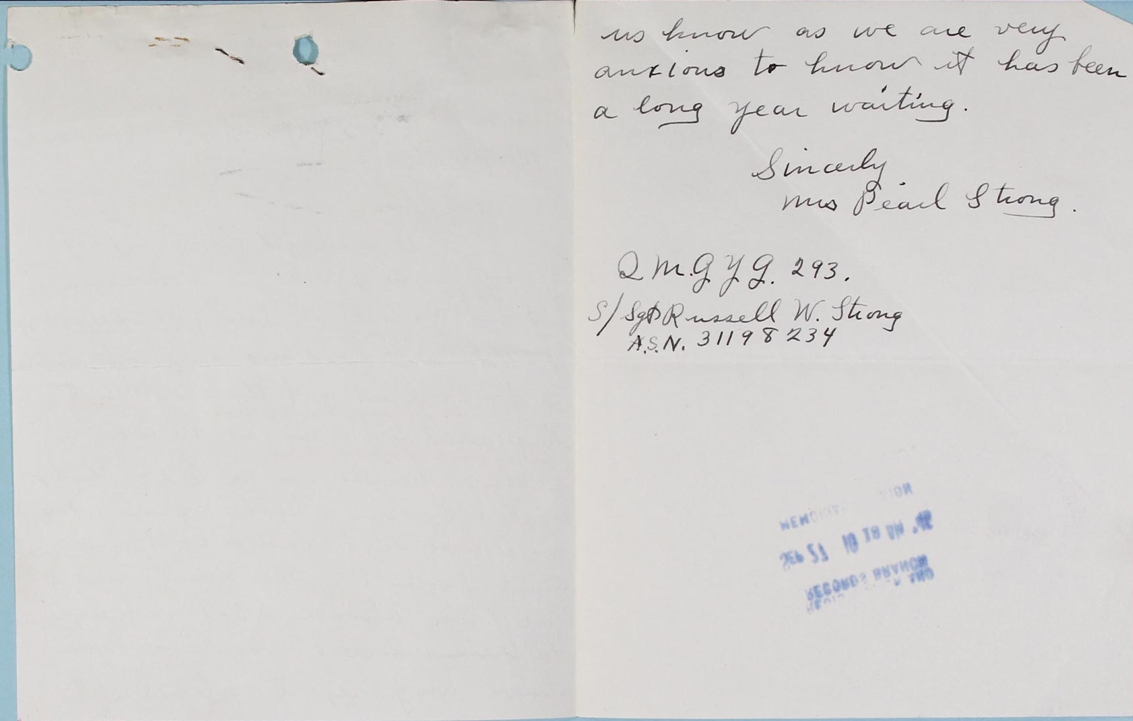 us know as we are very
anxious to know it has been
a long year waiting.
Sincerly
Mrs Pearl Strong.
Q M.G Y G. 293.
S/Sgt Russell W. Strong
A.S.N. 31198234
AND
RECORDS BRANCH
SEP 27 10 18 AM